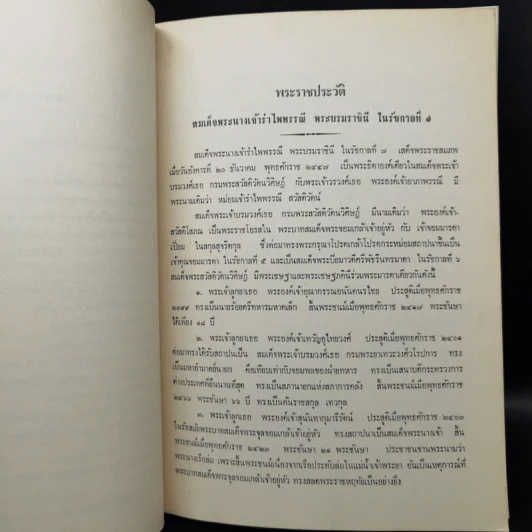 พระราชประวัติ
สมเด็จพระนางเจ้ารำไพพรรณี พระบรมราชินี ในรัชกาลที่ ๗
สมเด็จพระนางเจ้ารำไพพรรณี พระบรมราชินี ในรัชกาลที่ ๗ เสด็จพระราชสมภพ
เมื่อวันอังคารที่ ๒๐ ธันวาคม พุทธศักราช ๒๔๔๗ เป็นพระธิดาองค์เดียวในสมเด็จพระเจ้า
บรมวงศ์เธอ กรมพระสวัสดิวัดนวิศิษฎ์ กับพระเจ้าวรวงศ์เธอ พระองค์เจ้าอาภาพรรณี มี
พระนามเดิมว่า หม่อมเจ้ารำไพพรรณี สวัสดิวัตน์
สมเด็จพระเจ้าบรมวงศ์เธอ กรมพระสวัสดิวัดนวิศิษฎ์ มีนามเดิมว่า พระองค์เจ้า-
สวัสดิโสภณ เป็นพระราชโอรสใน พระบาทสมเด็จพระจอมเกล้าเจ้าอยู่หัว กับ เจ้าจอมมารดา
เปี่ยม ในสกุลสุจริตกุล ซึ่งต่อมาทรงพระกรุณาโปรดเกล้าโปรดกระหม่อมสถาปนาขึ้นเป็น
เจ้าคุณจอมมารดา ในรัชกาลที่ ๕ และเป็นสมเด็จพระปิยมาวดีศรีพัชรินทรมาตา ในรัชกาลที่ ๖
สมเด็จกรมพระสวัสดิวัดนวิศิษฎ์ มีพระเชษฐาและพระเชษฐภคินีร่วมพระมารดาเดียวกันดังนี้
๑. พระเจ้าลูกยาเธอ พระองค์เจ้าอุณากรรณอนันตนรไชย ประสูติเมื่อพุทธศักราช
๒๓๙๙ ทรงเป็นนายร้อยตรีทหารมหาดเล็ก สิ้นพระชนม์เมื่อพุทธศักราช ๒๔๑๗ พระชันษา
ได้เพียง ๑๘ ปี
๒. พระเจ้าลูกยาเธอ พระองค์เจ้าเทวัญอุไทยวงศ์ ประสูติเมื่อพุทธศักราช ๒๔๐๑
ต่อมาทรงได้รับสถาปนาเป็น สมเด็จพระเจ้าบรมวงศ์เธอ กรมพระยาเทวะวงศ์วโรปการ ทรง
เป็นมหาอำมาตย์นายก คือเทียบเท่ากับจอมพลของฝ่ายทหาร ทรงเป็นเสนาบดีกระทรวงการ
ต่างประเทศที่ยืนนานที่สุด ทรงเป็นสภานายกแห่งสภาการคลัง สิ้นพระชนม์เมื่อพุทธศักราช
๒๔๖๖ พระชันษา ๖๖ ปี ทรงเป็นต้นราชสกุล เทวกุล
๓. พระเจ้าลูกเธอ พระองค์เจ้าสุนันทากุมารีรัตน์ ประสูติเมื่อพุทธศักราช ๒๔๐๓
ในรัชสมัยพระบาทสมเด็จพระจุลจอมเกล้าเจ้าอยู่หัว ทรงสถาปนาเป็นสมเด็จพระนางเจ้า สิ้น
พระชนม์เมื่อพุทธศักราช ๒๔๒๓ พระชันษา ๒๑ พระชันษา ประชาชนขานพระนามว่า
พระนางเรือล่ม เพราะสิ้นพระชนม์เนื่องจากเรือประทับล่มในแม่น้ำเจ้าพระยา อันเป็นเหตุการณ์ที่
พระบาทสมเด็จพระจุลจอมเกล้าเจ้าอยู่หัว ทรงสลดพระราชหฤทัยเป็นอย่างยิ่ง